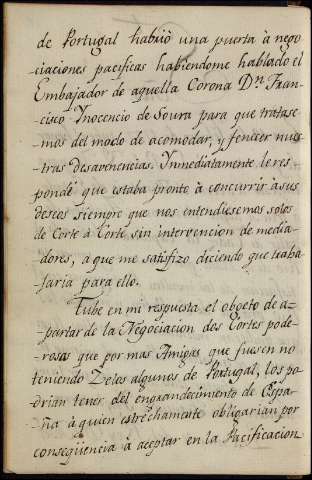 de Portugal habrió una puerta à nego
ciaciones pacificas habiendome hablado el
Embajador de aquella Corona Dn. Fran-
-cisco Ynocencio de Soura para que tratase-
-mos del modo de acomodar, y fenecer nues
-tras desavenencias. Ynmediatamente le res-
-pondé que estaba pronto à concurrir à sus
deseos siempre que nos entendiesemos solos
de Corte à Corte sin intervencion de media-
-dores, a que me satisfizo diciendo que trava
-jaria para ello.
Tube en mi respuesta el objeto de a-
-partar de la Negociacion dos Cortes pode-
-rosas que por mas Amigas que fuesen no
teniendo Zelos algunos de Portugal, los po-
drian tener del engrandecimiento de Espa-
-ña à quien estrechamente obligarian por
conseqüencia à aceptar en la Pacificacion